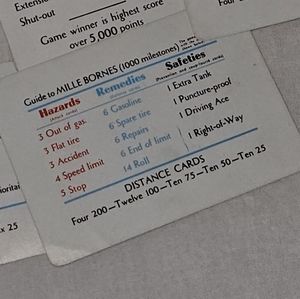 Extensi
Shut-out
Game winner is highest score
over 5,000 points
Guide to MILLE BORNES (1000 milestones)
Hazards Remedies Safeties
3 Out of gas 6 Gasoline 1 Extra Tank
3 Flat tire 6 Spare tire 1 Puncture-proof
3 Accident 6 Repairs 1 Driving Ace
4 Speed limit 6 End of limit 1 Right-of-Way
5 Stop 14 Roll
DISTANCE CARDS
Four 200—Twelve 100—Ten 75—Ten 50—Ten 25
x 25